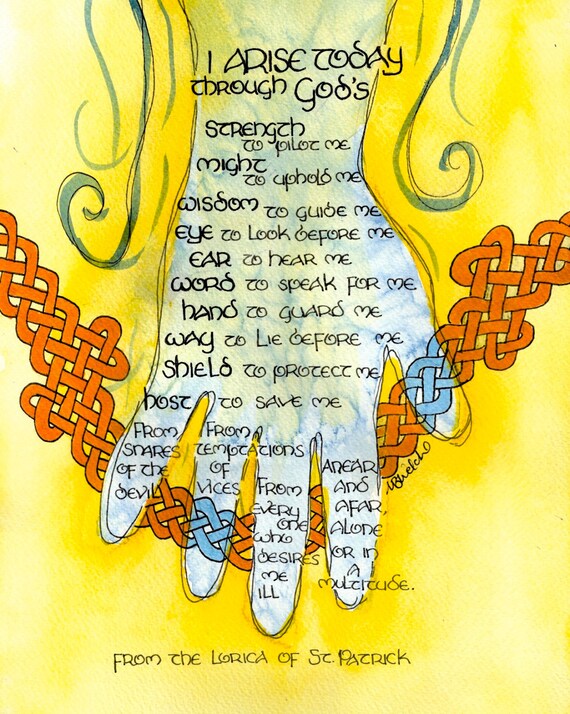 I ARISE TODAY
through God's
STRENGTH
to pilot me
Might
to uphold me
Wisdom to guide me
Eye to look before me
Ear to hear me
Word to speak for me
Hand to guard me
Way to lie before me
Shield to protect me
Host to save me
From
snares
of the
devil
From
temptations
of
vices
From
every
one
who
desires
me
ill
Anear
and
afar,
alone
or in
a
multitude.
From the Lorica of St. Patrick